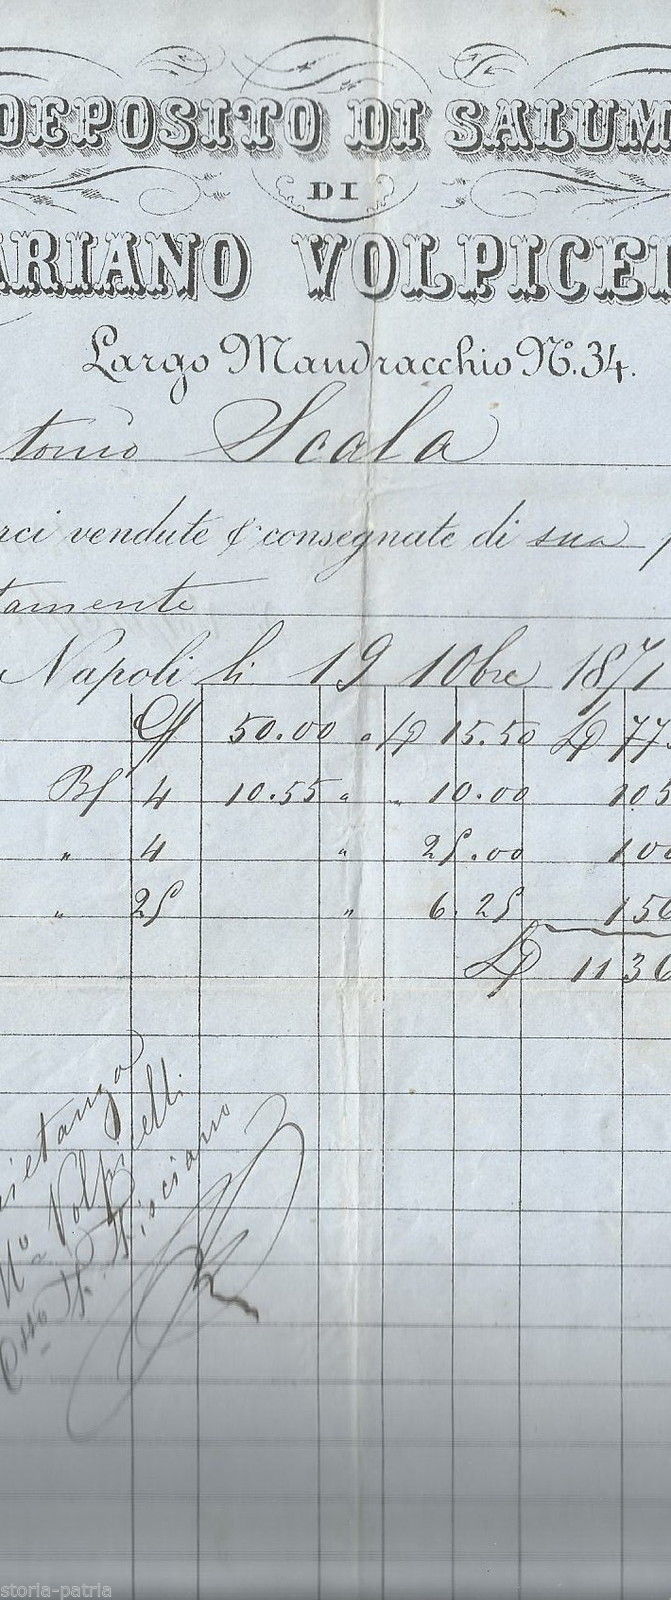 DEPOSITO DI SALUM
DI
ARIANO VOLPICEL
Largo Mandracchio No. 34.
tonio Scala
rci vendute & consegnate di sua p
tamente
Napoli li 19 10bre 1871
50.00 " 15.50 775
Bf 4 10.55 " " 10.00 105
" 4 " 25.00 100
" 25 " 6.25 156
1136
uietanza
Mo Volpicelli
Visciano
storia-patria